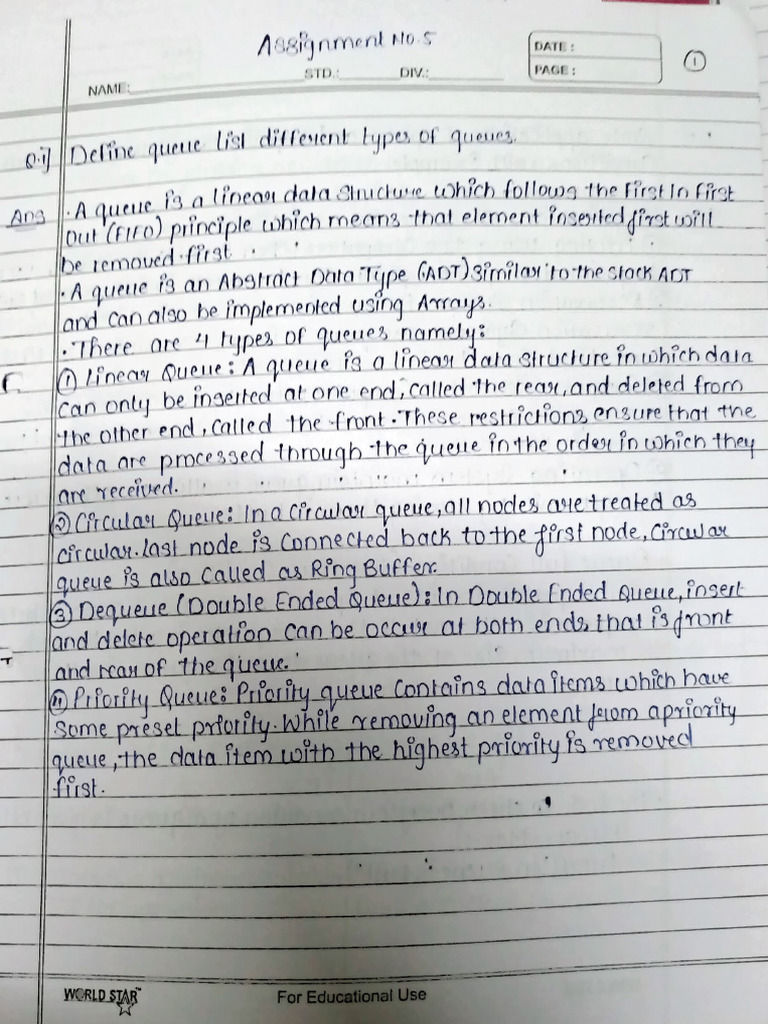 Assignment No. 5
DATE :
PAGE :
1
NAME:
STD.:
DIV.:
Q.1] Define queue list different types of queues.
Ans · A queue is a linear data structure which follows the First In First
Out (FIFO) principle which means that element inserted first will
be removed first.
· A queue is an Abstract Data Type (ADT) similar to the stack ADT
and can also be implemented using Arrays.
· There are 4 types of queues namely:
① Linear Queue: A queue is a linear data structure in which data
can only be inserted at one end, called the rear, and deleted from
the other end, called the front. These restrictions ensure that the
data are processed through the queue in the order in which they
are received.
② Circular Queue: In a circular queue, all nodes are treated as
circular. last node is connected back to the first node, circular
queue is also called as Ring Buffer.
③ Dequeue (Double Ended Queue): In Double Ended Queue, insert
and delete operation can be occur at both ends that is front
and rear of the queue.
④ Priority Queue: Priority queue contains data items which have
some preset priority. While removing an element from a priority
queue, the data item with the highest priority is removed
first.
WORLD STAR™
For Educational Use